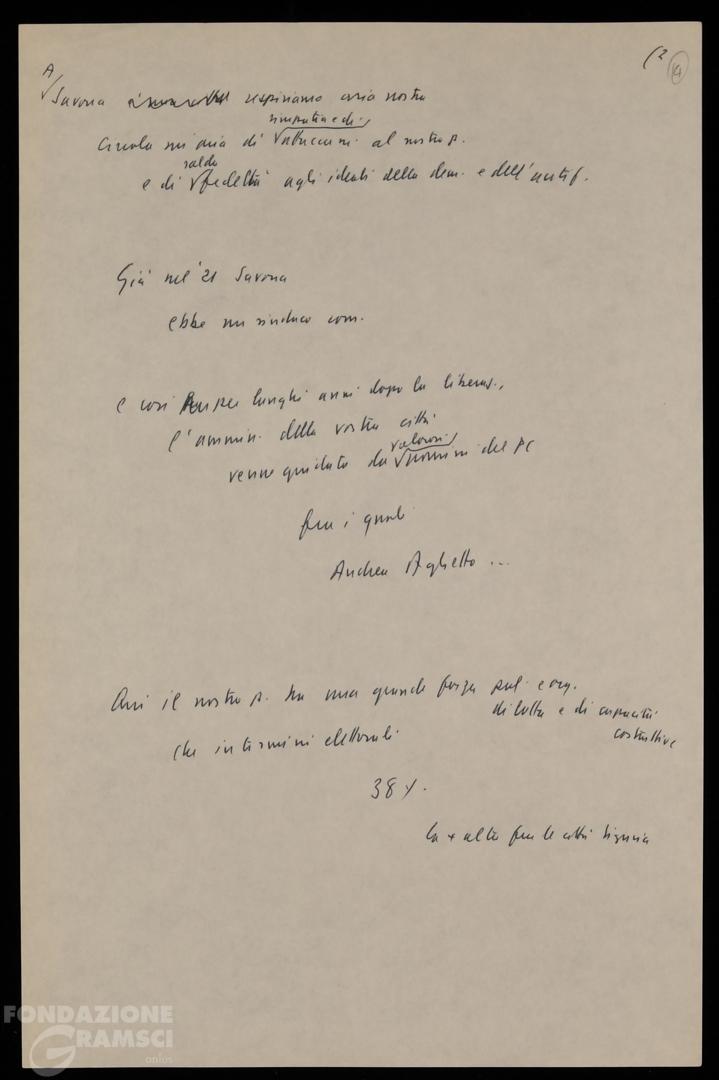 (2 (4)
A
Savona respiriamo aria nostra
simpatia e di
Circola un'aria di attaccam. al nostro p.
salda
e di fedeltà agli ideali della dem. e dell'antif.
Già nel '21 Savona
ebbe un sindaco com.
e così per lunghi anni dopo la liberaz.,
l'ammin. della vostra città
valorosi
venne guidata da uomini del PC
fra i quali
Andrea Aglietto ...
Qui il nostro p. ha una grande forza pol. e org.
di lotta e di capacità
costruttive
che in termini elettorali
38%.
la + alta fra le città Liguria
FONDAZIONE
GRAMSCI
onlus